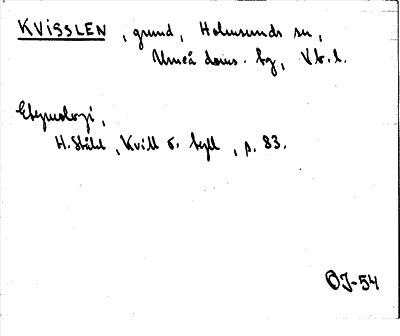 KVISSLEN, grund, Holmsunds sn,
Umeå doms. bg, Vb. l.
Etymologi,
H. Ståhl, Kvill o. tyll, p. 83.
OJ-54